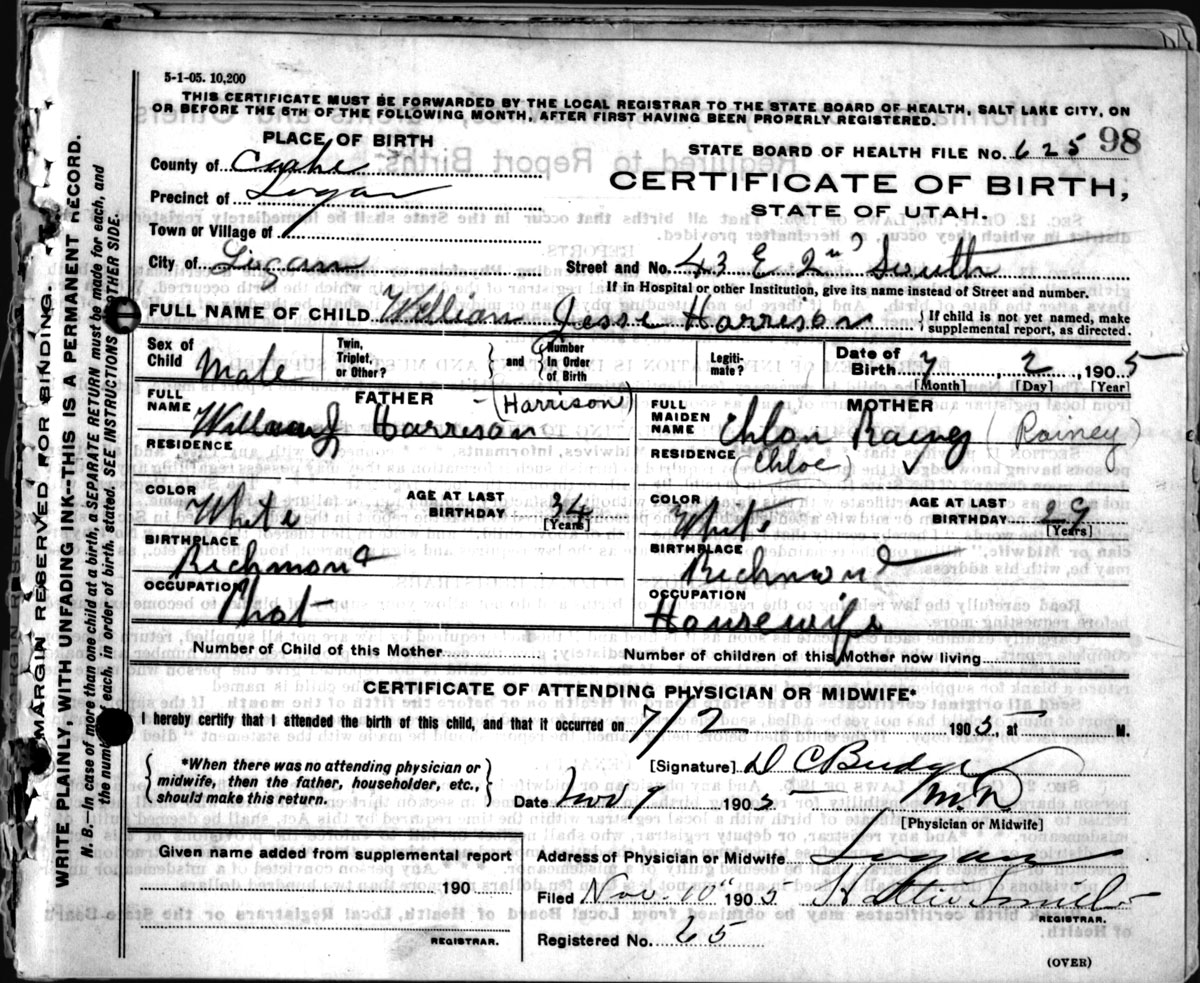 5-1-05. 10,200
THIS CERTIFICATE MUST BE FORWARDED BY THE LOCAL REGISTRAR TO THE STATE BOARD OF HEALTH, SALT LAKE CITY, ON
OR BEFORE THE 5TH OF THE FOLLOWING MONTH, AFTER FIRST HAVING BEEN PROPERLY REGISTERED.
PLACE OF BIRTH
STATE BOARD OF HEALTH FILE No. 625 98
County of Cache
CERTIFICATE OF BIRTH,
STATE OF UTAH.
Precinct of Logan
Town or Village of
City of Logan Street and No. 43 E 2nd South
If in Hospital or other Institution, give its name instead of Street and number.
FULL NAME OF CHILD William Jesse Harrison { If child is not yet named, make supplemental report, as directed.
Sex of Child Male
Twin, Triplet, or Other?
and Number in Order of Birth
Legitimate?
Date of Birth 7 2 1905
[Month] [Day] [Year]
FATHER
FULL NAME William J Harrison (Harrison)
RESIDENCE
COLOR White
AGE AT LAST BIRTHDAY 34 [Years]
BIRTHPLACE Richmond
OCCUPATION Phot
Number of Child of this Mother
MOTHER
FULL MAIDEN NAME Chloe Rainey (Rainey)
RESIDENCE (Chloe)
COLOR White
AGE AT LAST BIRTHDAY 29 [Years]
BIRTHPLACE Richmond
OCCUPATION Housewife
Number of children of this Mother now living
CERTIFICATE OF ATTENDING PHYSICIAN OR MIDWIFE*
I hereby certify that I attended the birth of this child, and that it occurred on 7/2 1905, at M.
{ *When there was no attending physician or midwife, then the father, householder, etc., should make this return. }
[Signature] D C Budge
M.D.
Date Nov 7 1905
[Physician or Midwife]
Given name added from supplemental report
190
REGISTRAR.
Address of Physician or Midwife Logan
Filed Nov. 10" 1905 Hattie Smith
REGISTRAR.
Registered No. 65
(OVER)
MARGIN RESERVED FOR BINDING.
WRITE PLAINLY, WITH UNFADING INK--THIS IS A PERMANENT RECORD.
N. B.—In case of more than one child at a birth, a SEPARATE RETURN must be made for each, and
the number of each, in order of birth, stated. SEE INSTRUCTIONS OTHER SIDE.